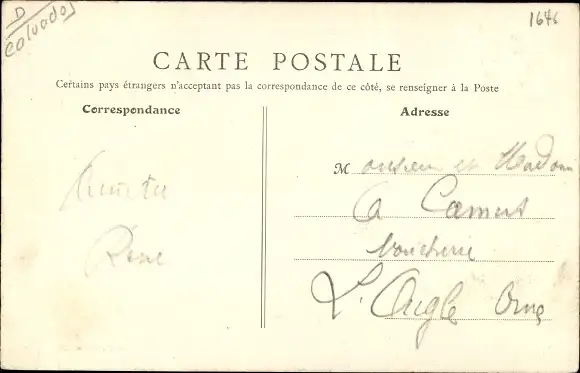 D
Calvados
1646
CARTE POSTALE
Certains pays étrangers n'acceptant pas la correspondance de ce côté, se renseigner à la Poste
Correspondance
Adresse
Amitié
René
Monsieur et Madame
A Camus
boucherie
L'Aigle Orne